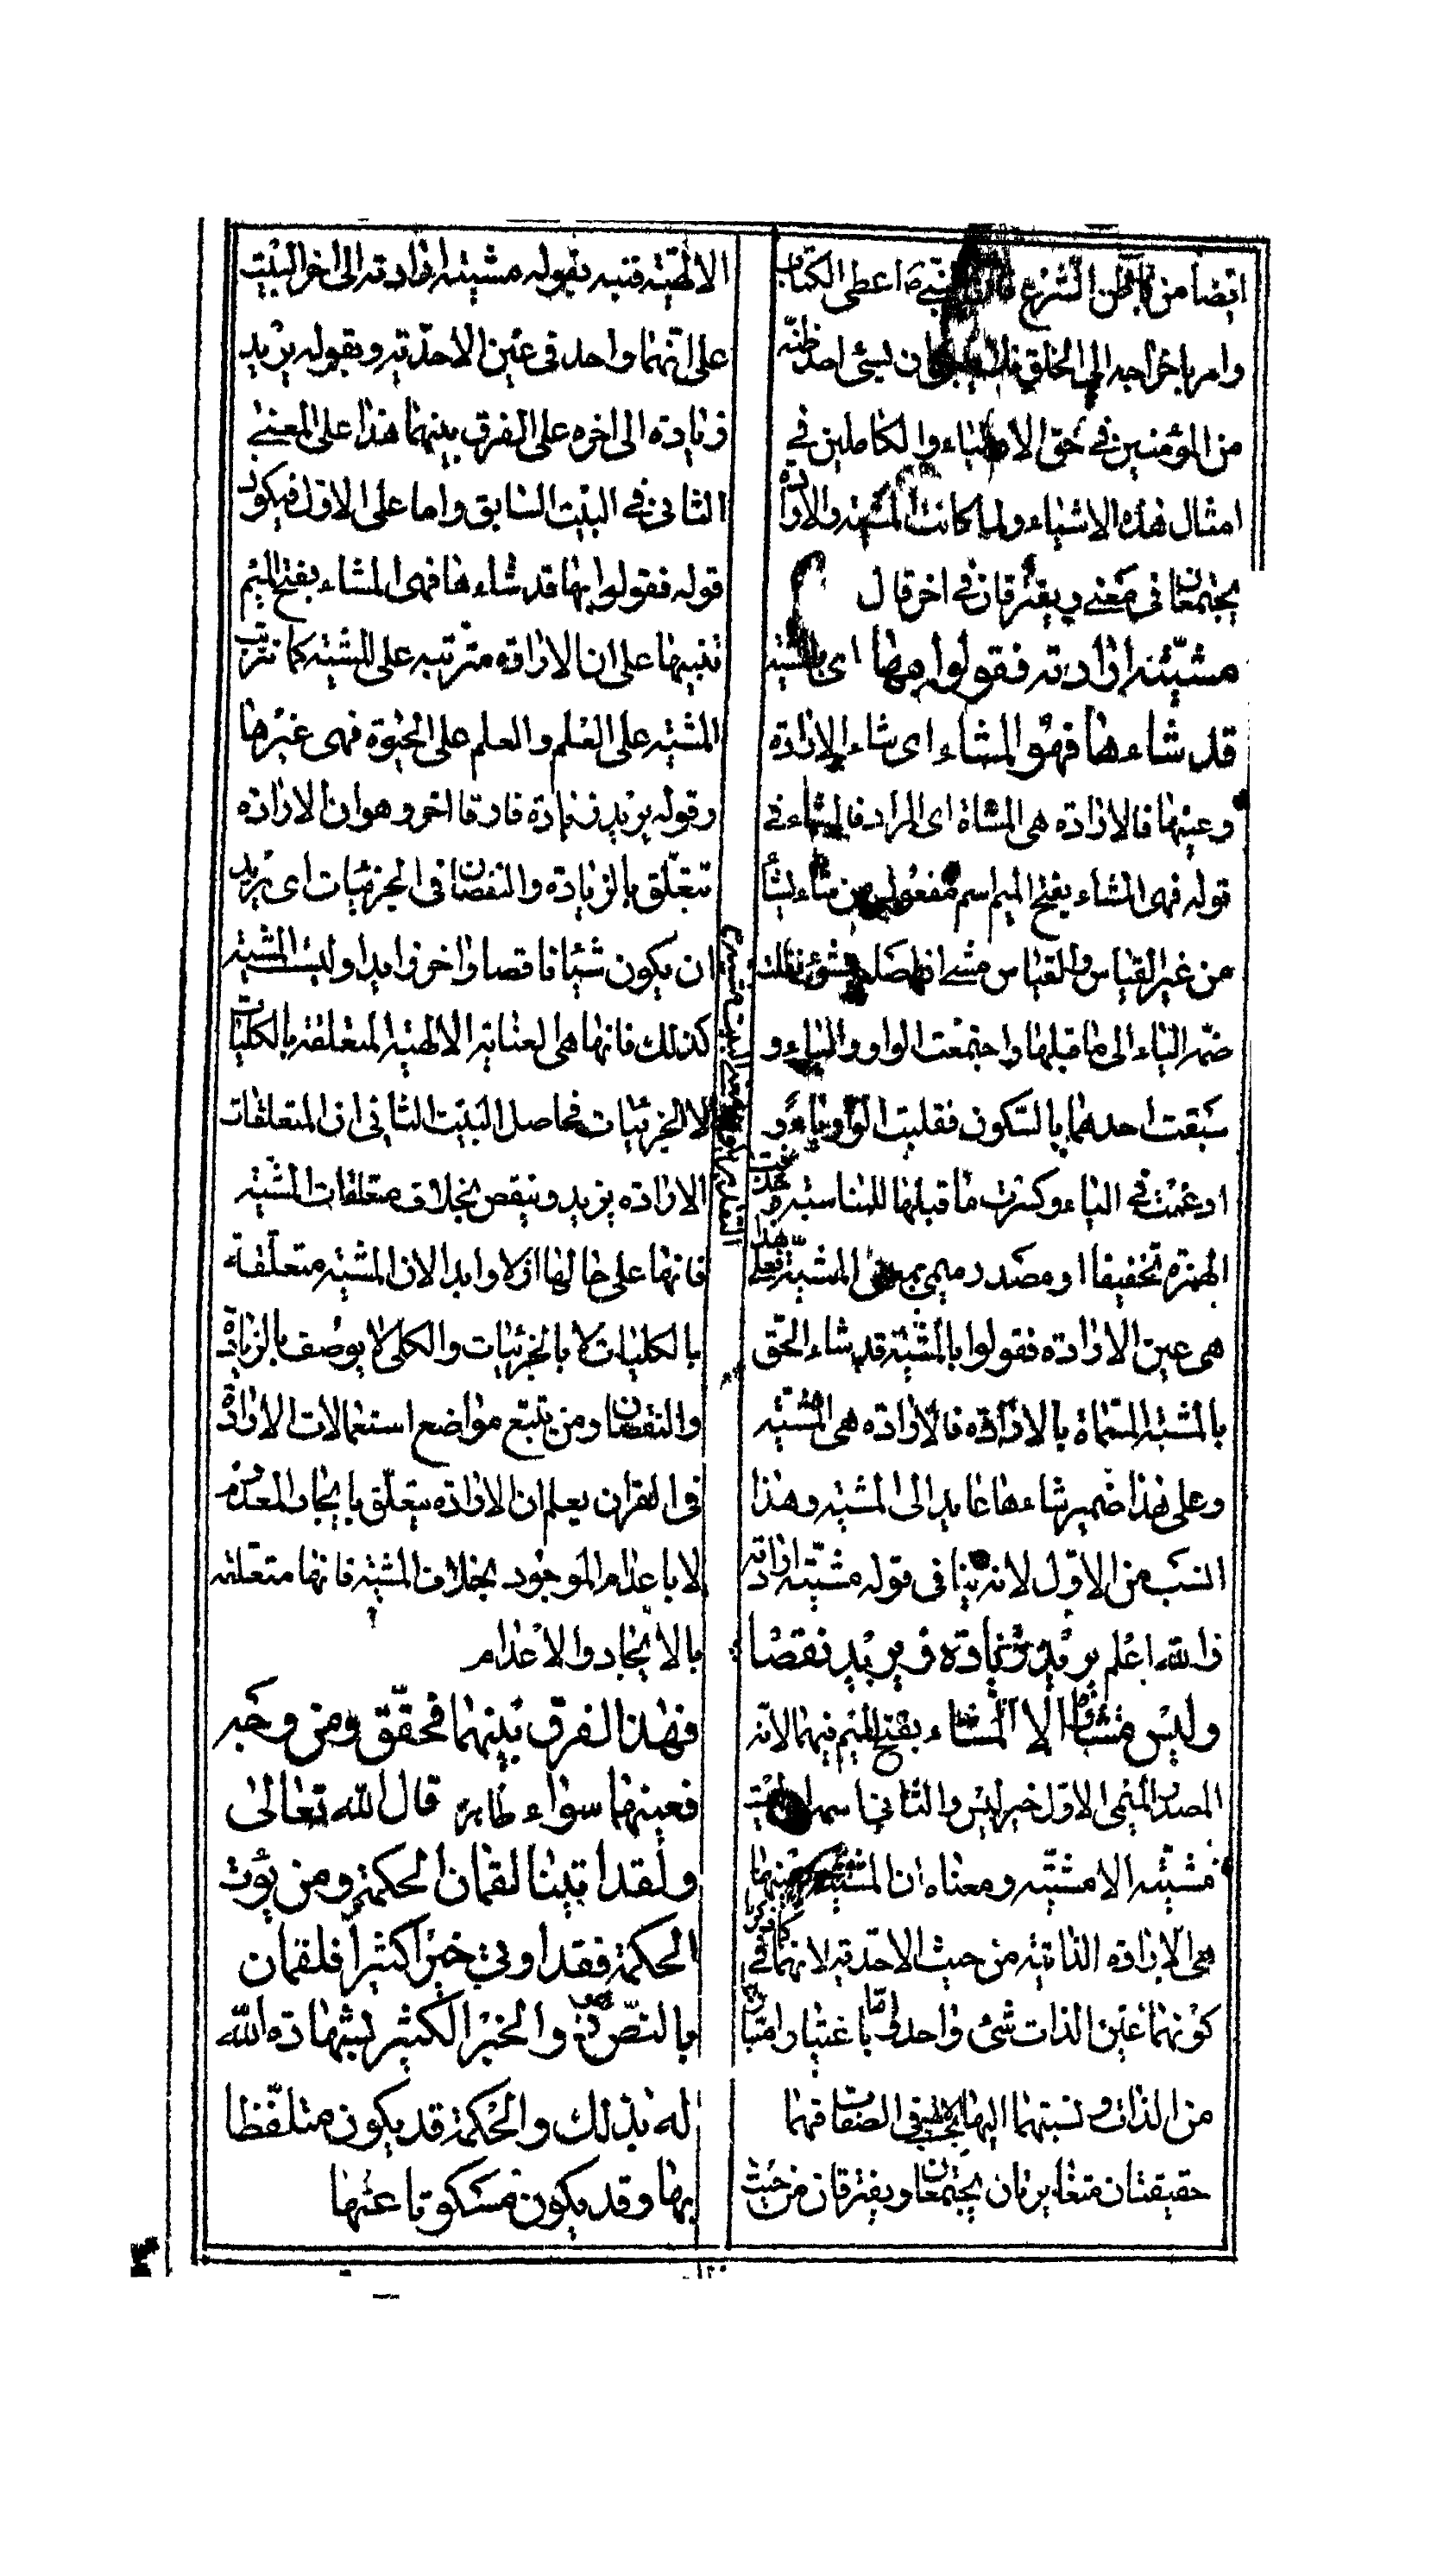 ايضا من باطن الشرع فان النبى ص اعطى الكتاب
وامر باخراجه الى الخلق فلا ان يسئ احد ظنه
من المؤمنين فى حق الاولياء والكاملين فى
امثال هذه الاشياء ولما كانت المشية والارادة
يجتمعان فى معنى ويفترقان فى اخر قال
مشيئته ارادته فقولوا بها اى بالمشية
قد شاءها فهو المشاء اى شاء الارادة
وعينها فالارادة هى المشاة اى المراد فالمشاء فى
قوله فهى المشاء بفتح الميم اسم مفعول من شاء يشأ
من غير القياس والقياس مشئ اذ اصله مشيوء نقلت
ضمة الياء الى ما قبلها واجتمعت الواو والياء و
سبقت احدهما بالسكون فقلبت الواو ياء و
ادغمت فى الياء وكسرت ما قبلها للمناسبة ثم حذفت
الهمزة تخفيفا او مصدر ميمى بمعنى المشية فعلى هذا
هى عين الارادة فقولوا بالمشية قد شاء الحق
بالمشية المسماة بالارادة فالارادة هى المشية
وعلى هذا ضمير شاءها عايد الى المشية وهذا
انسب من الاول لانه بينا فى قوله مشيته ارادته
والله اعلم يريد زيادة ويريد نقصا
وليس مشاؤه الا المشاء بفتح الميم فيهما لانه
المصدر الميمى الاول خبر ليس والثانى اسمها اى ليست
مشيته الا مشيته ومعناه ان المشية عينها
هى الارادة الذاتية من حيث الاحدية لانهما فى
كونهما عين الذات شئ واحد واما باعتبار امتيازهما
من الذات ونسبتهما اليها فى الصفات فهما
حقيقتان متغايرتان يجتمعان ويفترقان من حيث
الالهية فنبه بقوله مشيته ارادته الى اخر البيت
على انهما واحد فى عين الاحدية وبقوله يريد
زيادة الى اخره على الفرق بينهما هذا على المعنى
الثانى فى البيت السابق واما على الاول فيكون
قوله فقولوا بها قد شاءها فهى المشاء بفتح الميم
تنبيها على ان الارادة مترتبه على المشية كما تترتب
المشية على العلم والعلم على الحيوة فهى غيرها
وقوله يريد زيادة فارقا اخر وهو ان الارادة
تتعلق بالزيادة والنقصان فى الجزئيات اى يريد
ان يكون شيئا ناقصا واخر زايدا وليست المشية
كذلك فانها هى العناية الالهية المتعلقة بالكليات
لا الجزئيات فحاصل البيت الثانى ان المتعلقات
الارادة يزيد وينقص بخلاف متعلقات المشية
فانها على حالها ازلا وابدا لان المشية متعلقة
بالكليات لا بالجزئيات والكلى لا يوصف بالزيادة
والنقصان ومن يتبع مواضع استعمالات الارادة
فى القران يعلم ان الارادة يتعلق بايجاد المعدوم
لا باعدام الموجود بخلاف المشية فانها متعلقة
بالايجاد والاعدام
فهذا الفرق بينهما فحقق ومن وجه
فعينهما سواء ظاهر قال الله تعالى
ولقد اتينا لقمان الحكمة ومن يؤت
الحكمة فقد اوتى خيرا كثيرا فلقمان
بالنص هو ذو الخير الكثير بشهادة الله
له بذلك والحكمة قد يكون متلفظا
بها وقد يكون مسكوتا عنها
١٢٠